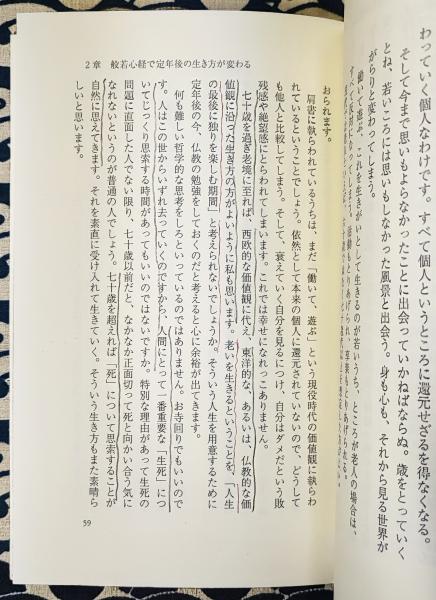 わっていく個人なわけです。すべて個人というところに還元せざるを得なくなる。
そして今まで思いもよらなかったことに出会っていかねばならぬ。歳をとっていく
とね、若いころには思いもしなかった風景と出会う。身も心も、それから見る世界が
がらりと変わってしまう。
働いて遊ぶ、これを生きがいとして生きるのが若いうち、ところが老人の場合は、
2章 般若心経で定年後の生き方が変わる
おられます。
肩書に執らわれているうちは、まだ「働いて、遊ぶ」という現役時代の価値観に執らわ
れているということでしょう。依然として本来の個人に還元されていないので、どうして
も他人と比較してしまう。そして、衰えていく自分を見るにつけ、自分はダメだという敗
残感や絶望感にとらわれてしまいます。これでは幸せになれっこありません。
七十歳を過ぎ老境に至れば、西欧的な価値観に代え、東洋的な、あるいは、仏教的な価
値観に沿った生き方の方がよいように私も思います。老いを生きるということを、「人生
の最後に独りを楽しむ期間」と考えられないでしょうか。そういう人生を用意するために
定年後の今、仏教の勉強をしておくのだと考えると心に余裕が出てきます。
何も難しい哲学的な思考をしろといっているのではありません。お寺回りでもいいので
す。人はこの世からいずれ去っていくのですから、人間にとって一番重要な「生死」につ
いてじっくり思索する時間があってもいいのではないですか。特別な理由があって生死の
問題に直面した人でない限り、七十歳以前だと、なかなか正面切って死と向かい合う気に
なれないというのが普通の人でしょう。七十歳を超えれば「死」について思索することが
自然に思えてきます。それを素直に受け入れて生きていく。そういう生き方もまた素晴ら
しいと思います。
59